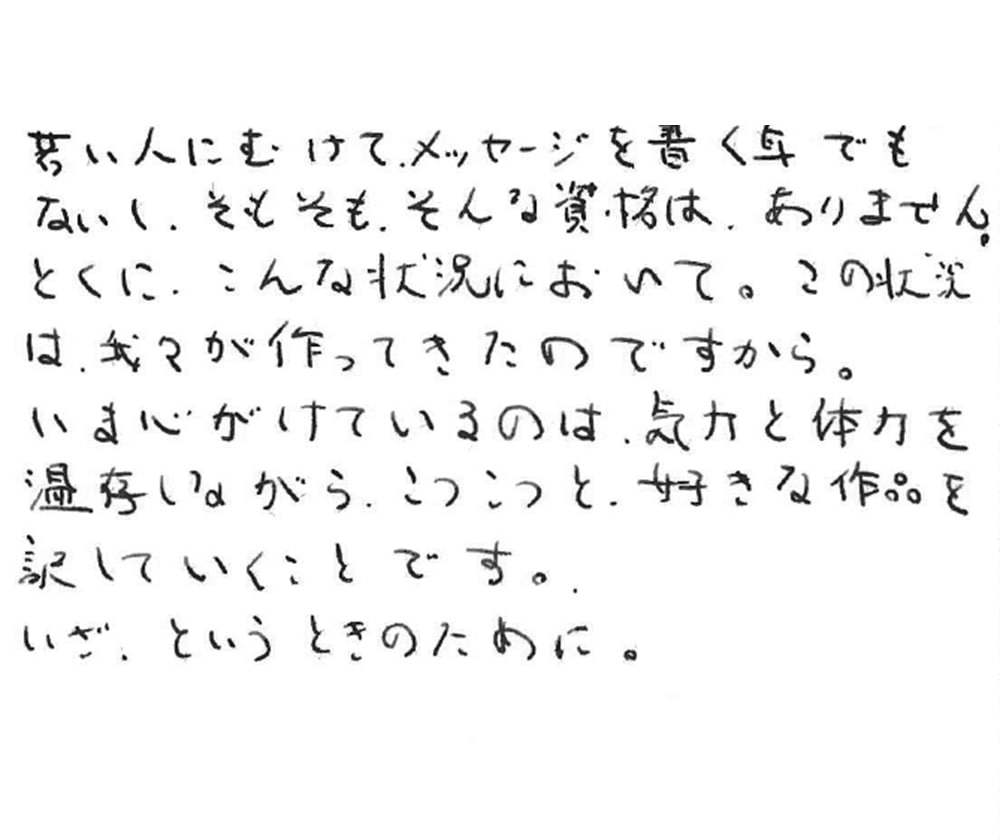 若い人にむけて、メッセージを書く年でも
ないし、そもそも、そんな資格は、ありません。
とくに、こんな状況において。この状況
は、我々が作ってきたのですから。
いま心がけているのは、気力と体力を
温存しながら、こつこつと、好きな作品を
訳していくことです。
いざ、というときのために。